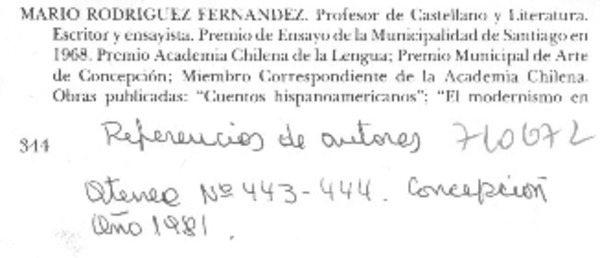 MARIO RODRIGUEZ FERNANDEZ. Profesor de Castellano y Literatura.
Escritor y ensayista. Premio de Ensayo de la Municipalidad de Santiago en
1968. Premio Academia Chilena de la Lengua; Premio Municipal de Arte
de Concepción; Miembro Correspondiente de la Academia Chilena.
Obras publicadas: "Cuentos hispanoamericanos"; "El modernismo en
344 Referencias de autores 710672
Atenea Nº 443-444. Concepción
Año 1981.